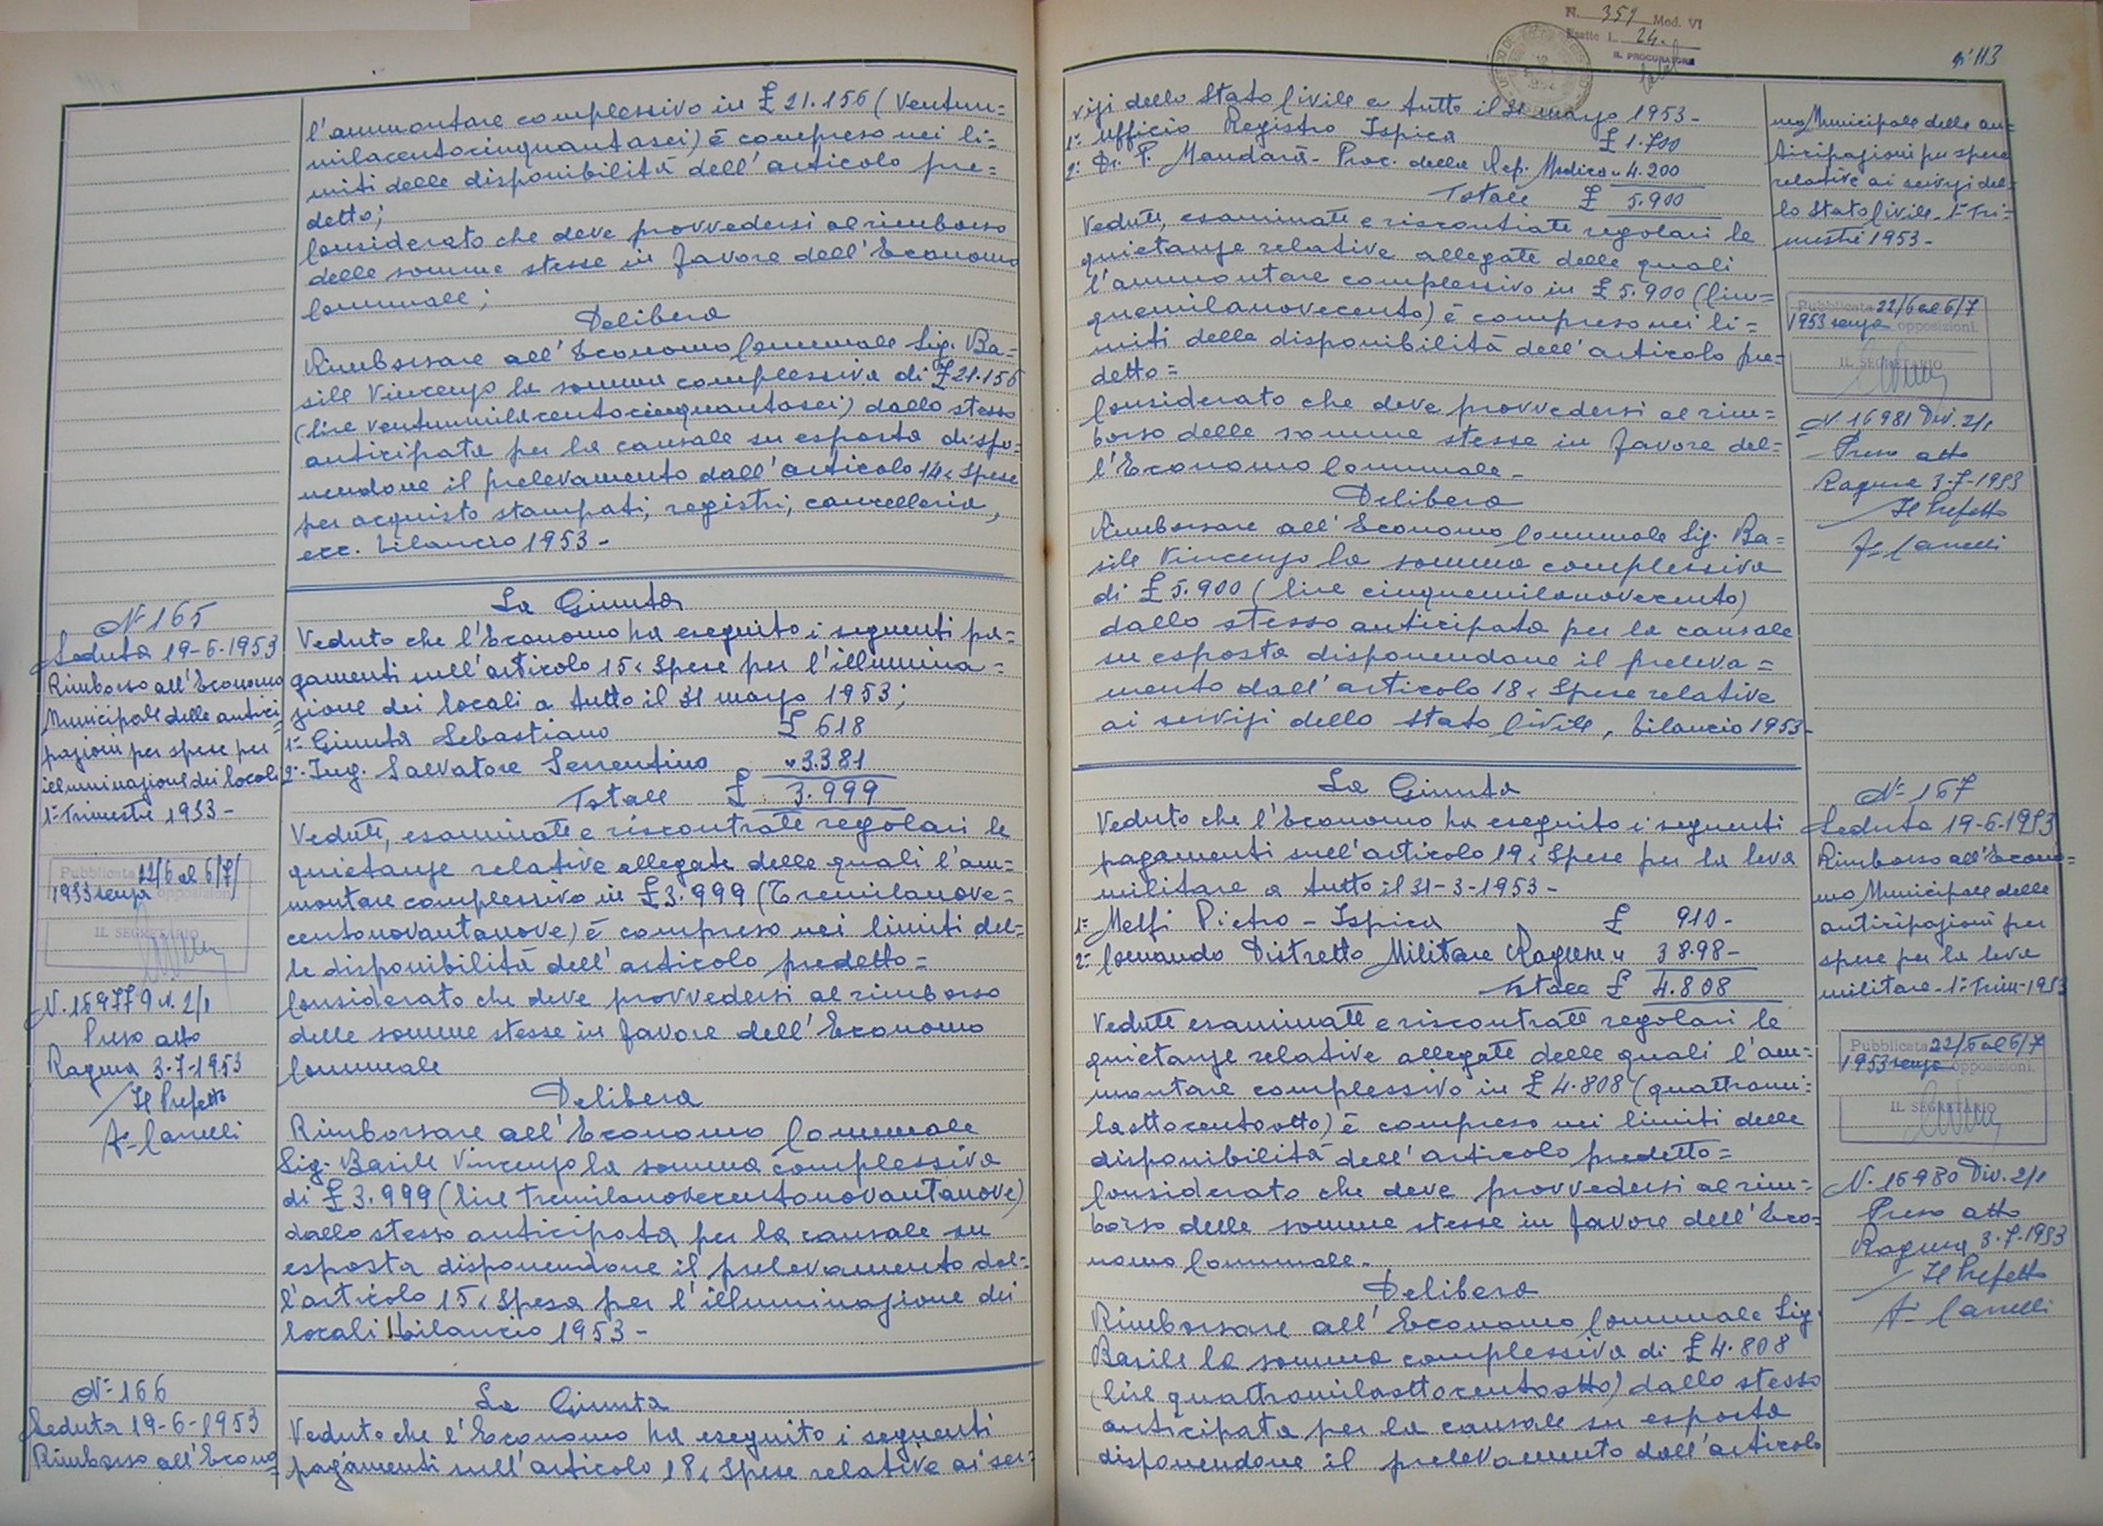 l'ammontare complessivo in £ 21.156 (ventun=
milacentocinquantasei) è compreso nei li=
miti delle disponibilità dell'articolo pre=
detto;
Considerato che deve provvedersi al rimborso
delle somme stesse in favore dell'Economo
Comunale;
Delibera
Rimborsare all'Economo Comunale Sig. Ba=
sile Vincenzo la somma complessiva di £ 21.156
(lire ventunmilacentocinquantasei) dallo stesso
anticipata per la causale su esposta dispo=
nendone il prelevamento dall'articolo 14 "Spese
per acquisto stampati, registri, cancelleria,
ecc. bilancio 1953 -
N 165
Seduta 19-6-1953
Rimborso all'Economo
Municipale delle antici
pazioni per spese per
illuminazione dei locali
1° Trimestre 1953 -
Pubblicata 22/6 al 6/7/
1953 senza opposizioni.
IL SEGRETARIO
2/1
Preso atto
Ragusa 3-7-1953
Il Prefetto
La Giunta
Veduto che l'Economo ha eseguito i seguenti pa=
gamenti sull'articolo 15 "Spese per l'illumina=
zione dei locali a tutto il 31 marzo 1953;
1°- Giunta Sebastiano £ 618
2°- Ing. Salvatore Serrentino " 3.381
Totale £ 3.999
Vedute, esaminate e riscontrate regolari le
quietanze relative allegate delle quali l'am=
montare complessivo in £ 3.999 (Tremilanove=
centonovantanove) è compreso nei limiti del=
le disponibilità dell'articolo predetto=
Considerato che deve provvedersi al rimborso
delle somme stesse in favore dell'Economo
Comunale
Delibera
Rimborsare all'Economo Comunale
Sig. Basile Vincenzo la somma complessiva
di £ 3.999 (lire tremilanovecentonovantanove)
dallo stesso anticipata per la causale su
esposta disponendone il prelevamento dal=
l'articolo 15 "Spesa per l'illuminazione dei
locali bilancio 1953 -
N° 166
Seduta 19-6-1953
Rimborso all'Econo
La Giunta
Veduto che l'Economo ha eseguito i seguenti
pagamenti sull'articolo 18 "Spese relative ai ser=
N. 359 Mod. VI
Esatte L. 24.
IL PROCURATORE
113
vizi dello Stato Civile a tutto il 31 marzo 1953 -
1°- Ufficio Registro Ispica £ 1.700
2° Dr. P. Mandarà - Proc. della Rep. Modica " 4.200
Totale £ 5.900
Vedute, esaminate e riscontrate regolari le
quietanze relative allegate delle quali
l'ammontare complessivo in £ 5.900 (Cin=
quemilanovecento) è compreso nei li=
miti della disponibilità dell'articolo pre=
detto=
Considerato che deve provvedersi al rim=
borso delle somme stesse in favore del=
l'Economo Comunale -
Delibera
Rimborsare all'Economo Comunale Sig. Ba=
sile Vincenzo la somma complessiva
di £ 5.900 (lire cinquemilanovecento)
dallo stesso anticipata per la causale
su esposta disponendone il preleva=
mento dall'articolo 18 "Spese relative
ai servizi dello Stato Civile, bilancio 1953-
mo Municipale delle an=
ticipazioni per spese
relative ai servizi del=
lo Stato Civile - 1° Tri=
mestre 1953 -
Pubblicata 22/6 al 6/7
1953 senza opposizioni.
IL SEGRETARIO
N. 16981 Div. 2/1
Preso atto
Ragusa 3-7-1953
Il Prefetto
La Giunta
Veduto che l'Economo ha eseguito i seguenti
pagamenti sull'articolo 19 "Spese per la leva
militare a tutto il 31-3-1953 -
1°- Melfi Pietro - Ispica £ 910 -
2°- Comando Distretto Militare Ragusa " 38.98 -
Totale £ 4.808
Vedute esaminate e riscontrate regolari le
quietanze relative allegate delle quali l'am=
montare complessivo in £ 4.808 (quattromi=
laottocentootto) è compreso nei limiti delle
disponibilità dell'articolo predetto=
Considerato che deve provvedersi al rim=
borso delle somme stesse in favore dell'Eco=
nomo Comunale.
Delibera
Rimborsare all'Economo Comunale Sig.
Basile la somma complessiva di £ 4.808
(lire quattromilaottocentootto) dallo stesso
anticipata per la causale su esposta
disponendone il prelevamento dall'articolo
N° 167
Seduta 19-6-1953
Rimborso all'Econo=
mo Municipale delle
anticipazioni per
spese per la leva
militare - 1° Trim - 1953
Pubblicata 22/6 al 6/7
1953 senza opposizioni.
IL SEGRETARIO
N. 16980 Div. 2/1
Preso atto
Ragusa 3-7-1953
Il Prefetto